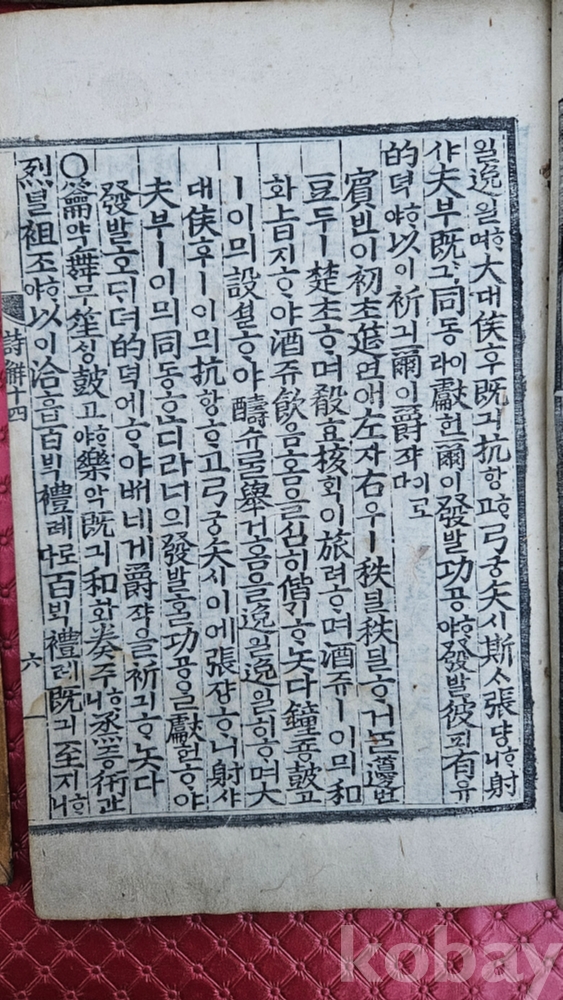 일逸일ᄒᆞ며大대侯후旣긔抗항ᄒᆞ고弓궁矢시斯ᄉᆞ張댱ᄒᆞ니射
샤夫부旣긔同동이라獻헌爾이發발功공ᄒᆞ야發발彼피有유
的뎍ᄒᆞ야以이祈긔爾이爵쟉이로다
賓빈이初초筵연애左자右우ㅣ秩딜秩딜ᄒᆞ거든籩변
豆두ㅣ楚초ᄒᆞ며殽효核ᄒᆡᆨ이旅려ᄒᆞ며酒쥬ㅣ이믜和
화旨지ᄒᆞ야酒쥬飮음홈을심히偕ᄀᆡᄒᆞ놋다鐘죵鼓고
ㅣ이믜設셜ᄒᆞ야醻슈ᄅᆞᆯ擧거홈을逸일逸일히ᄒᆞ며大
대侯후ㅣ이믜抗항ᄒᆞ고弓궁矢시이에張쟝ᄒᆞ니射샤
夫부ㅣ이믜同동ᄒᆞᆫ디라너의發발ᄒᆞᄂᆞᆫ功공을獻헌ᄒᆞ야
發발호ᄃᆡ뎌的뎍에ᄒᆞ야ᄡᅥ네게爵쟉을祈긔ᄒᆞ놋다
○籥약舞무笙ᄉᆡᆼ鼓고ᄒᆞ야樂악旣긔和화奏주ᄒᆞ니烝증衎간
烈렬祖조ᄒᆞ야以이洽흡百ᄇᆡᆨ禮례로다百ᄇᆡᆨ禮례旣긔至지ᄒᆞ니
詩解十四 六
kobay